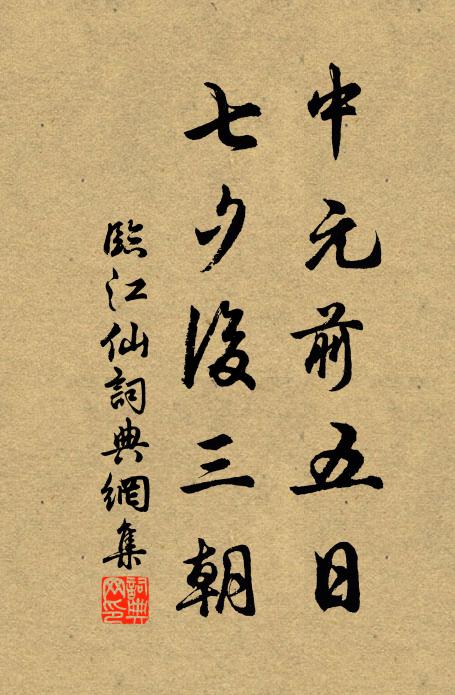 中元前五日
七夕後三朝
臨江仙詞典網集
詞典网印